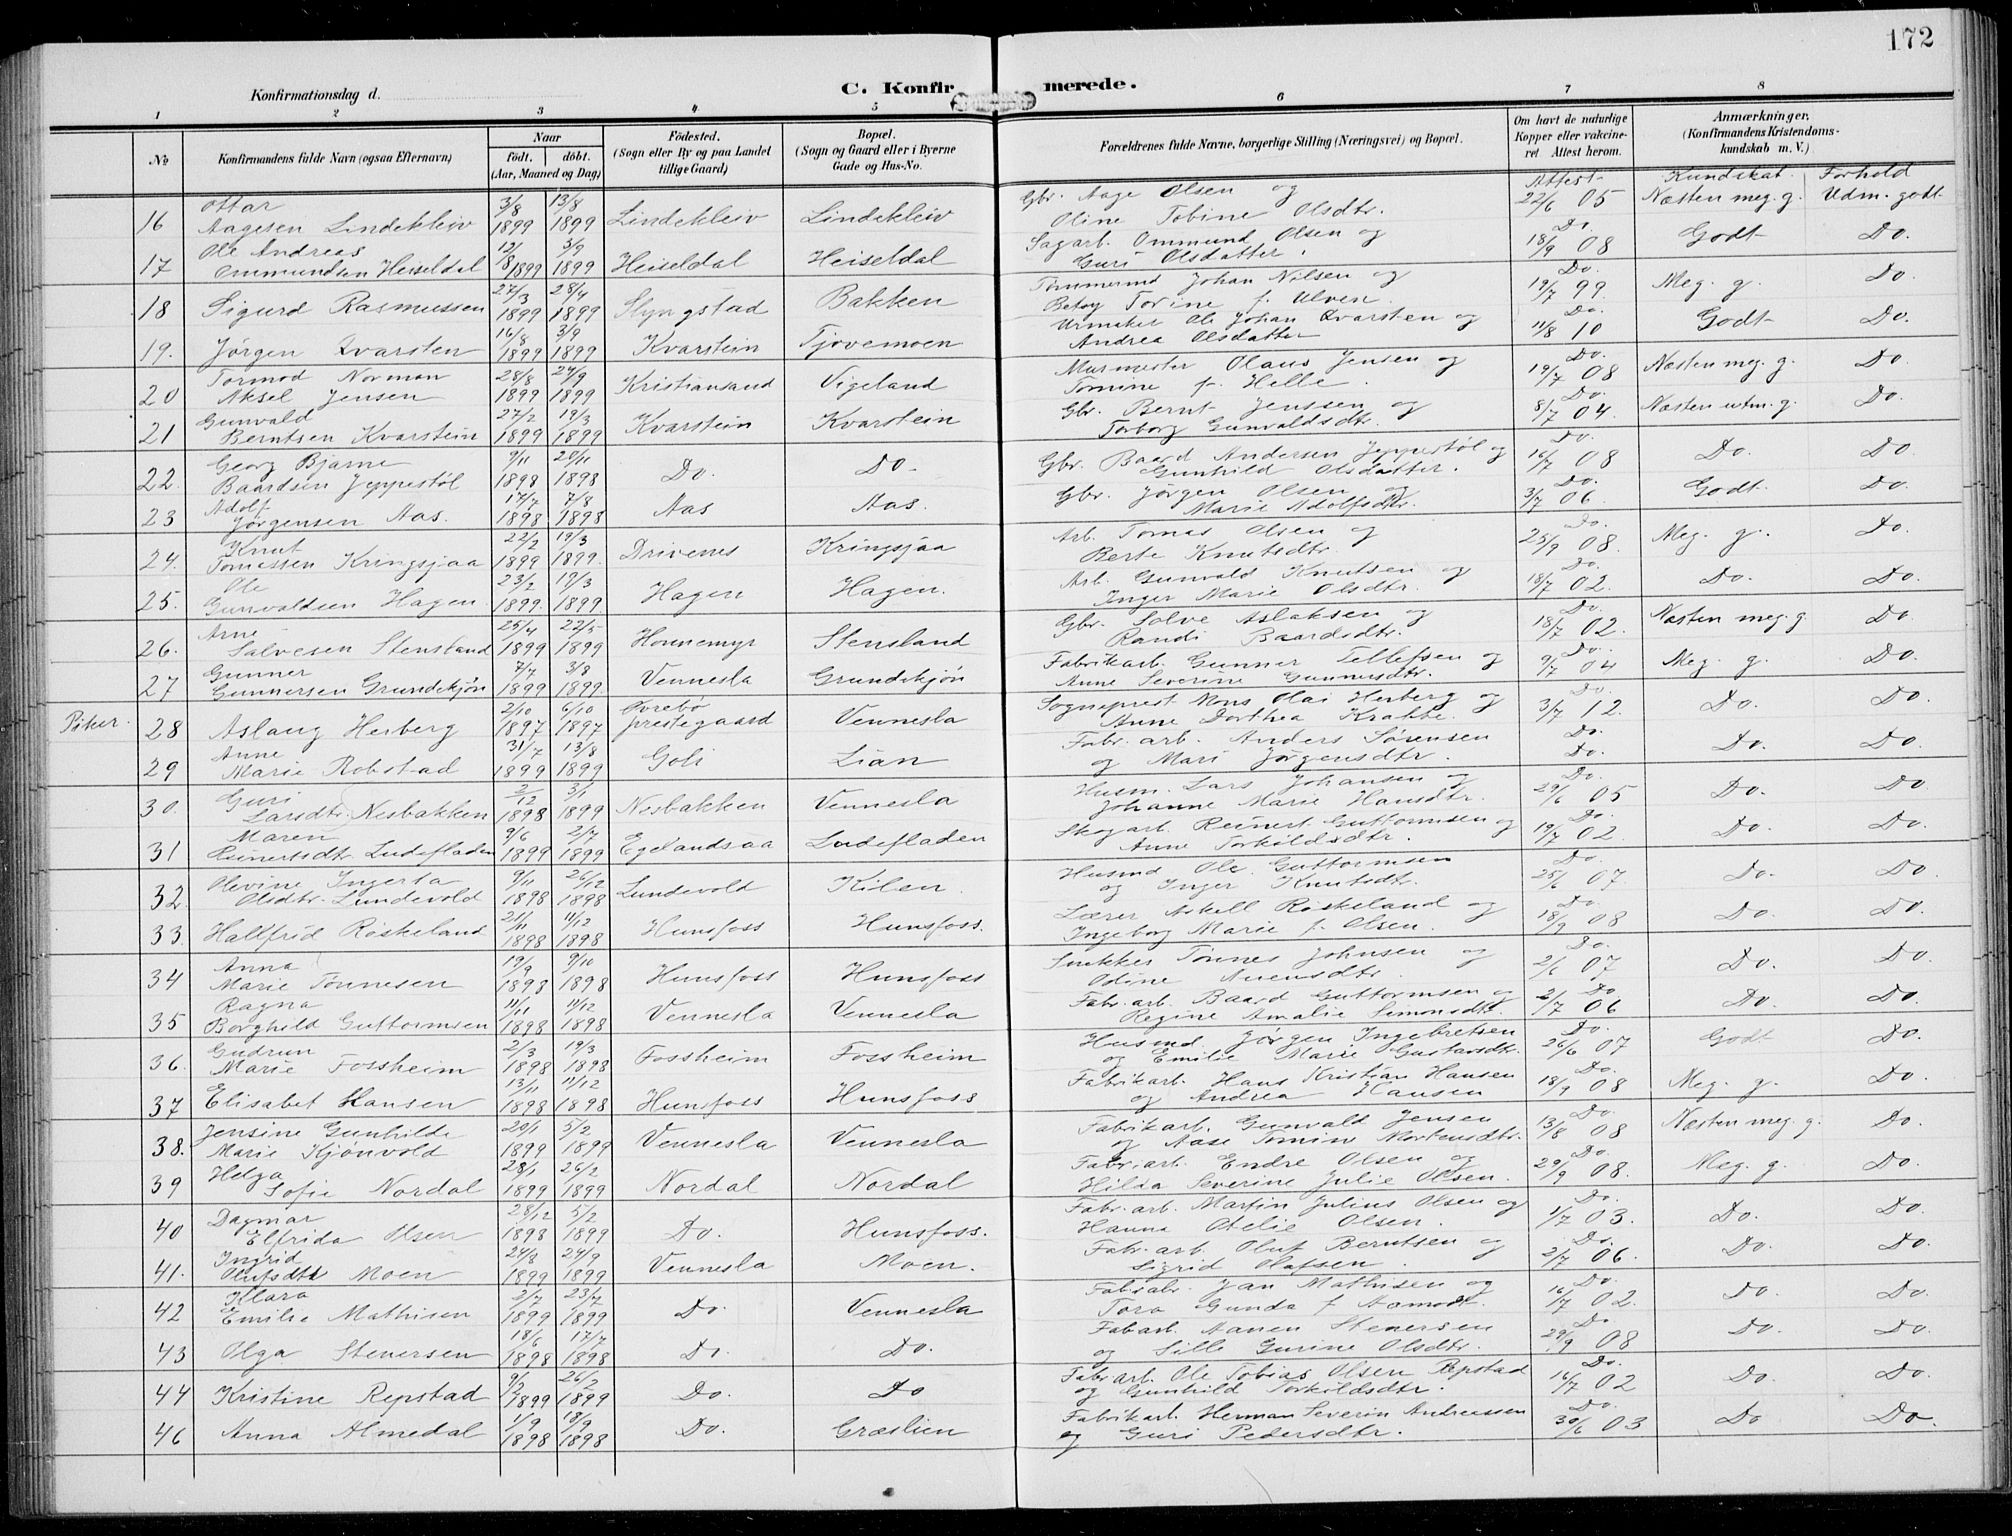 172
C. Konfirmerede.
Konfirmationsdag d.
1 2 3 4 5 6 7 8
No
Konfirmandens fulde Navn (ogsaa Efternavn)
Naar
födt. döbt.
(Aar, Maaned og Dag)
Födested.
(Sogn eller By og paa Landet
tillige Gaard)
Bopæl.
(Sogn og Gaard eller i Byerne
Gade og Hus-No.
Forældrenes fulde Navne, borgerlige Stilling (Næringsvei) og Bopæl.
Om havt de naturlige
Kopper eller vakcine-
ret Attest herom.
Anmærkninger,
(Konfirmandens Kristendoms-
kundskab m. V.)
Attest Kundskab. Forhold
16 Ottar Aagesen Lindekleiv 3/8 1899 13/8 1899 Lindekleiv Lindekleiv Gbr. Aage Olsen og Oline Tobine Olsdtr. 22/6 05 Næsten meg. g. Udm. godt
17 Ole Andreas Ommundsen Heiseldal 12/8 1899 3/9 1899 Heiseldal Heiseldal Sagarb. Ommund Olsen og Guri Olsdatter. Do. 18/9 08 Godt Do.
18 Sigurd Rasmussen 27/3 1899 28/4 1899 Slyngstad Bakken Tømmermd Johan Nilsen og Betsy Torine f. Ulven. Do. 19/7 99 Meg. g. Do.
19. Jørgen Kvarsten 16/8 1899 3/9 1899 Kvarstein Tjovemoen Urmaker Ole Johan Kvarsten og Andrea Olsdatter Do. 11/8 10 Godt Do.
20 Tormod Norman Aksel Jensen 28/8 1899 24/9 1899 Kristiansand Vigeland Murmester Olaus Jensen og Tomine f. Helle. Do. 19/7 08 Næsten meg. g. Do.
21 Gunvald Berntsen Kvarstein 27/2 1899 19/3 1899 Kvarstein Kvarstein Gbr. Bernt Jenssen og Torborg Gunvaldsdtr. Do. 8/7 04. Næsten utm. g. Do.
22. Georg Bjarne Baardsen Jeppestøl 9/11 1898 20/11 1898 Do. Do. Gbr. Baard Andersen Jeppestøl og Gunhild Olsdatter. Do. 16/7 08 Do. Do.
23 Adolf Jørgensen Aas. 17/7 1898 7/8 1898 Aas Aas. Gbr. Jørgen Olsen og Marie Adolfsdtr. Do. 3/7 06. Godt. Do.
24. Knut Tomassen Kringsjaa 22/2 1899 19/3 1899. Drivenes Kringsjaa Arb. Tomas Olsen og Berte Knutsdtr. Do. 25/9 08. Meg. g. Do.
25. Ole Gunvaldsen Hagen. 23/2 1899. 19/3 1899 Hagen Hagen. Arb. Gunvald Knutsen og Inger Marie Olsdtr. Do. 18/7 02. Do. Do.
26. Arne Salvesen Stensland 25/4 1899 22/5 1899 Honnemyr Stensland Gbr. Salve Aslaksen og Randi Baardsdtr. Do. 18/7 02. Næsten meg. g. Do.
27 Gunner Gunnersen Grundekjøn 7/7 1899 3/8 1899. Vennesla Grundekjøn Fabrikarb. Gunner Tellefsen og Anne Severine Gunnersdtr. Do. 9/7 04 Meg. g. Do.
Piker. 28 Aslaug Herberg 2/10 1897 6/10 1897 Øvrebø prestegaard Vennesla Sogneprest Mons Olai Herberg og Anne Dorthea Krabbe. Do. 3/7 12. Do. Do.
29 Anne Marie Robstad 31/7 1899 13/8 1899 Goli Lian Fabr. arb. Anders Sørensen og Mari Jørgensdtr. Do. Do. Do. Do.
30. Guri Larsdtr. Nesbakken 2/12 1898 3/1 1899 Nesbakken Vennesla Husm. Lars Johansen og Johanne Marie Hansdtr. Do. 29/6 05 Do. Do.
31 Maren Reinertsdtr. Ludefladen 9/6 1899 2/7 1899 Egelandsaa Ludefladen Skogarb. Reinert Guttormsen og Anne Torkildsdtr. Do. 19/7 02. Do. Do.
32. Olevine Ingerta Olsdtr. Lundevold 9/11 1898 26/12 1898 Lundevold Kilen. Husmd Ole Guttormsen og Inger Knutsdtr. Do. 25/6 07. Do. Do.
33. Hallfrid Røskeland 21/11 1898 11/12 1898 Hunsfoss Hunsfoss. Lærer Askell Røskeland og Ingeborg Marie f. Olsen. Do. 18/9 08 Do. Do.
34 Anna Marie Tønnesen 19/9 1898 9/10 1898 Hunsfoss Hunsfoss Snekker Tønnes Johnsen og Odine Auensdtr. Do. 2/6 07 Do. Do.
35 Ragna Borghild Guttormsen 11/11 1898 11/12 1898 Vennesla Vennesla Fabr. arb. Baard Guttormsen og Regine Amalie Simonsdtr. Do. 2/7 06 Do. Do.
36. Gudrun Marie Fossheim 2/3 1898 19/3 1898 Fossheim Fossheim Husmd. Jørgen Ingebretsen og Emilie Marie Gustavsdtr. Do. 26/6 07 Godt Do.
37 Elisabet Hansen 13/11 1898 11/12 1898 Hunsfoss Hunsfoss Fabrikarb. Hans Kristian Hansen og Andrea Hansen Do. 18/9 08 Meg. g. Do.
38. Jensine Gunhilde Marie Kjønvold 20/1 1899 5/2 1899 Vennesla Vennesla Fabrikarb. Gunvald Jensen og Aase Tomine Mortensdtr. Do. 13/8 08 Næsten meg. g. Do.
39 Helga Sofie Nordal 28/1 1899 26/2 1899 Nordal Nordal Fabr. arb. Endre Olsen og Hilda Severine Julie Olsen. Do. 29/9 08. Meg. g. Do.
40 Dagmar Elfrida Olsen 28/12 1898 5/2 1899 Do. Hunsfoss. Fabr. arb. Martin Julius Olsen og Hanna Otelie Olsen. Do. 1/7 03. Do. Do.
41. Ingrid Olufsdtr Moen 24/8 1899 24/9 1899 Vennesla Moen. Fabr. arb. Oluf Berntsen og Sigrid Olafsen. Do. 2/7 06. Do. Do.
42 Klara Emilie Mathisen 2/7 1899 23/7 1899 Do. Vennesla Fabr arb. Jan Mathisen og Tora Gunda f. Aamodt. Do. 16/7 02. Do. Do.
43 Olga Stenersen 18/6 1898 17/7 1898 Do. Do. Fab arb. Aanen Stenersen og Silli Gurine Olsdtr. Do 29/9 08 Do. Do.
44 Kristine Repstad 9/2 1899 26/2 1899 Do. Do Fabr arb. Ole Tobias Olsen Repstad og Gunhild Torkildsdtr. Do. 16/7 02 Do. Do.
46 Anna Almedal 1/9 1898 18/9 1898 Do. Græslien Fabrikarb. Herman Severin Andreassen og Guri Pedersdtr. Do. 30/6 03 Do Do.